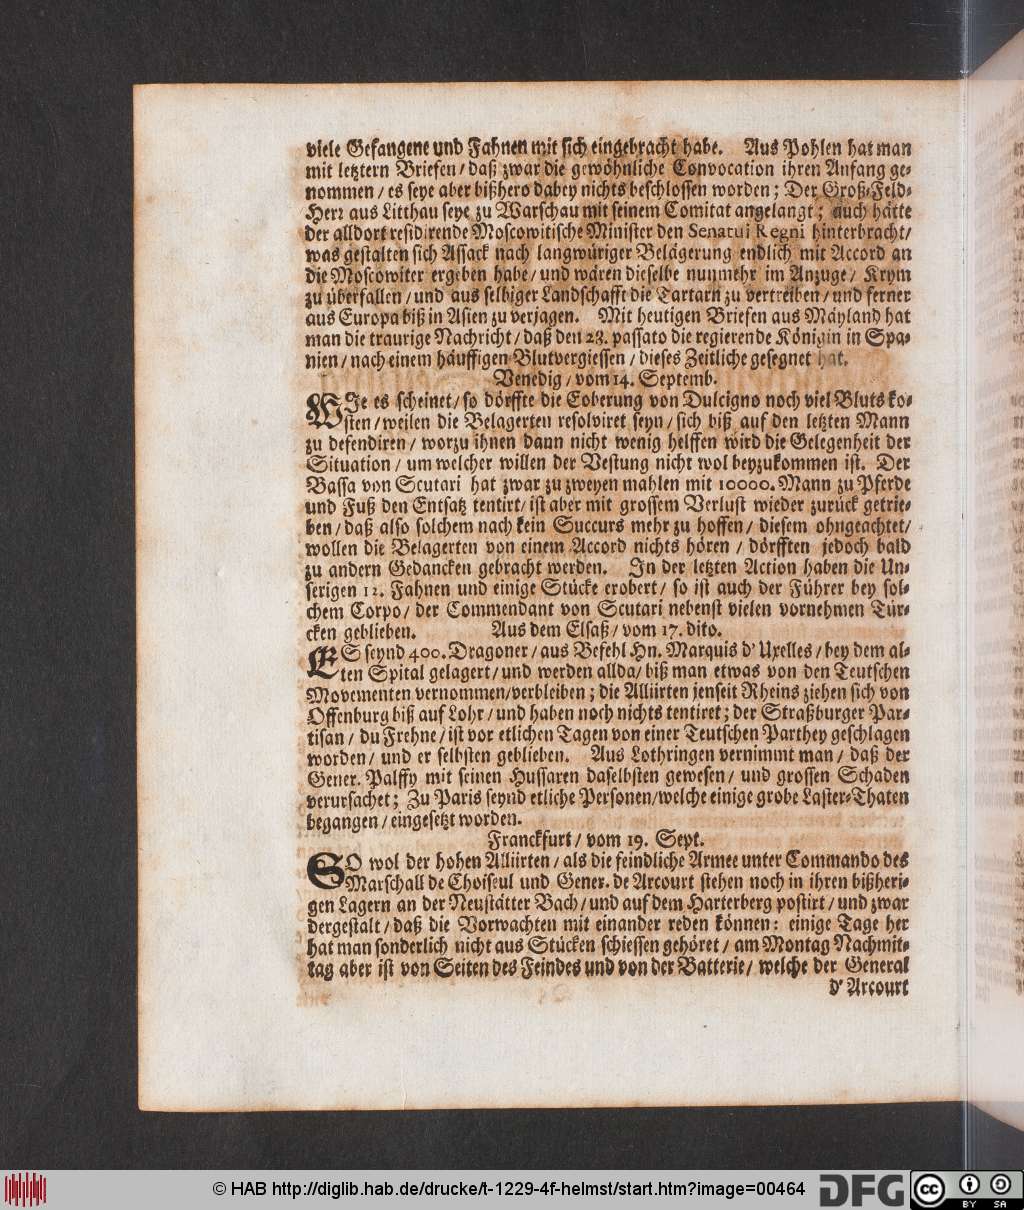 viele Gefangene und Fahnen mit sich eingebracht habe. Aus Pohlen hat man
mit letztern Briefen / daß zwar die gewöhnliche Convocation ihren Anfang ge-
nommen / es seye aber bißhero dabey nichts beschlossen worden; Der Groß-Feld-
Herr aus Litthau seye zu Warschau mit seinem Comitat angelangt; auch hätte
der alldort residirende Moscowitische Minister den Senatui Regni hinterbracht /
was gestalten sich Assack nach langwüriger Belägerung endlich mit Accord an
die Moscowiter ergeben habe / und wären dieselbe nunmehr im Anzuge / Krym
zu überfallen / und aus selbiger Landschafft die Tartarn zu vertreiben / und ferner
aus Europa biß in Asien zu verjagen. Mit heutigen Briefen aus Mäyland hat
man die traurige Nachricht / daß den 28. passato die regierende Königin in Spa-
nien / nach einem häuffigen Blutvergiessen / dieses Zeitliche gesegnet hat.
Venedig / vom 14. Septemb.
WIe es scheinet / so dörffte die Eoberung von Dulcigno noch viel Bluts ko-
sten / weilen die Belagerten resolviret seyn / sich biß auf den letzten Mann
zu defendiren / worzu ihnen dann nicht wenig helffen wird die Gelegenheit der
Situation / um welcher willen der Vestung nicht wol beyzukommen ist. Der
Bassa von Scutari hat zwar zu zweyen mahlen mit 10000. Mann zu Pferde
und Fuß den Entsatz tentirt / ist aber mit grossem Verlust wieder zurück getrie-
ben / daß also solchem nach kein Succurs mehr zu hoffen / diesem ohngeachtet /
wollen die Belagerten von einem Accord nichts hören / dörfften jedoch bald
zu andern Gedancken gebracht werden. In der letzten Action haben die Un-
serigen 12. Fahnen und einige Stücke erobert / so ist auch der Führer bey sol-
chem Corpo / der Commendant von Scutari nebenst vielen vornehmen Tür-
cken geblieben. Aus dem Elsaß / vom 17. dito.
ES seynd 400. Dragoner / aus Befehl Hn. Marquis d' Uxelles / bey dem al-
ten Spital gelagert / und werden allda / biß man etwas von den Teutschen
Movementen vernommen / verbleiben; die Alliirten jenseit Rheins ziehen sich von
Offenburg biß auf Lohr / und haben noch nichts tentiret; der Straßburger Par-
tisan / du Frehne / ist vor etlichen Tagen von einer Teutschen Parthey geschlagen
worden / und er selbsten geblieben. Aus Lothringen vernimmt man / daß der
Gener. Palffy mit seinen Hussaren daselbsten gewesen / und grossen Schaden
verursachet; Zu Paris seynd etliche Personen / welche einige grobe Laster-Thaten
begangen / eingesetzt worden.
Franckfurt / vom 19. Sept.
SO wol der hohen Alliirten / als die feindliche Armee unter Commando des
Marschall de Choiseul und Gener. de Arcourt stehen noch in ihren bißheri-
gen Lagern an der Neustätter Bach / und auf dem Harterberg postirt / und zwar
dergestalt / daß die Vorwachten mit einander reden können: einige Tage her
hat man sonderlich nicht aus Stücken schiessen gehöret / am Montag Nachmit-
tag aber ist von Seiten des Feindes und von der Batterie / welche der General
d' Arcourt
© HAB http://diglib.hab.de/drucke/t-1229-4f-helmst/start.htm?image=00464
DFG
cc BY SA